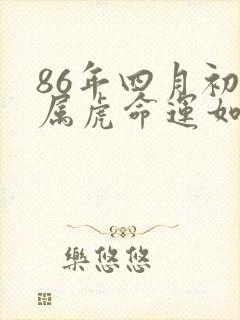 86年四月初
属虎命運如
樂悠悠